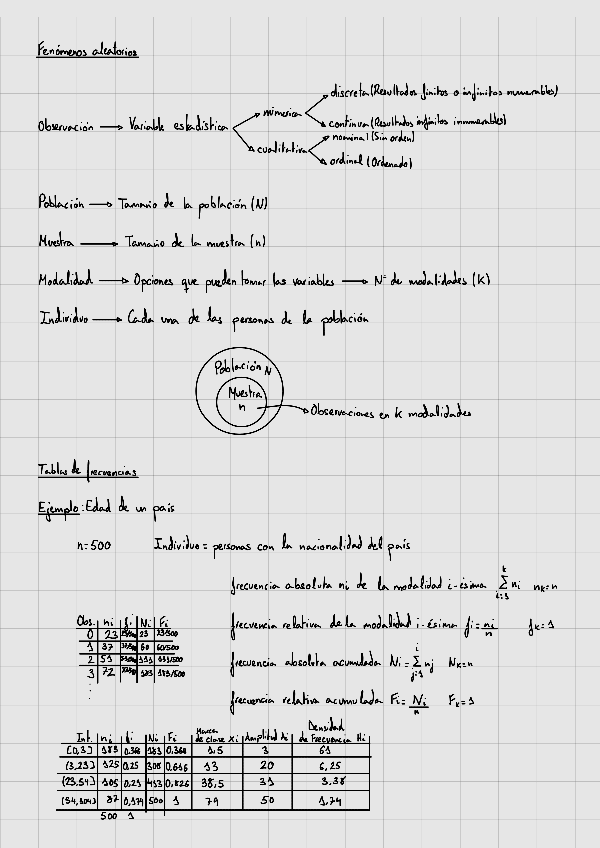 Fenómenos aleatorios
discreta (Resultados finitos o infinitos numerables)
numérica
Observación → Variable estadística
continua (Resultados infinitos innumerables)
nominal (Sin orden)
cualitativa
ordinal (Ordenado)
Población → Tamaño de la población (N)
Muestra → Tamaño de la muestra (n)
Modalidad → Opciones que pueden tomar las variables → Nº de modalidades (K)
Individuo → Cada una de las personas de la población
Población N
Muestra
n
Observaciones en K modalidades
Tablas de frecuencias
Ejemplo: Edad de un país
n=500 Individuo = personas con la nacionalidad del país
frecuencia absoluta ni de la modalidad i-ésima k Σ i=1 ni nk=n
frecuencia relativa de la modalidad i-ésima fi = ni/n fk=1
frecuencia absoluta acumulada Ni = i Σ j=1 nj Nk=n
frecuencia relativa acumulada Fi = Ni/n Fk=1
Obs. ni fi Ni Fi
0 23 23/500 23 23/500
1 37 37/500 60 60/500
2 51 51/500 111 111/500
3 72 72/500 183 183/500
Int. ni fi Ni Fi Marca de clase xi Amplitud Ai Densidad de Frecuencia Hi
[0,3] 183 0,366 183 0,366 1,5 3 61
(3,23] 125 0,25 308 0,616 13 20 6,25
(23,54] 105 0,21 413 0,826 38,5 31 3,38
(54,104] 87 0,174 500 1 79 50 1,74
500 1